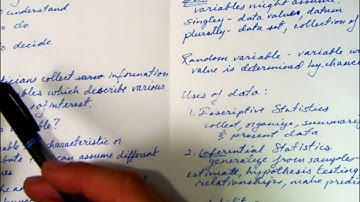 understand
to do
to decide
collect
which describe various
of interest.
characteristic or
can assume different
variables might assume.
singley - data values, datum
plurally - data set, collection of
Random variable - variable w
value is determined by chance
Uses of data:
1. Descriptive Statistics
collect, organize, summari
& present data
2. Inferential Statistics
generalize from samples
estimate, hypothesis testing
relationships, make predi